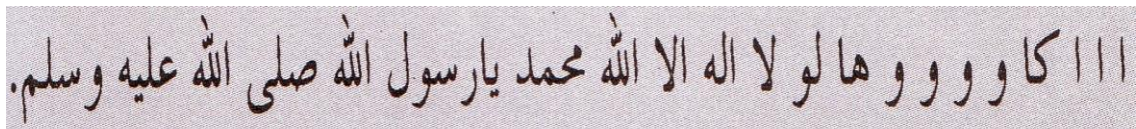 ا ا ا كا و و و و ها لو لا اله الا الله محمد يارسول الله صلى الله عليه وسلم.